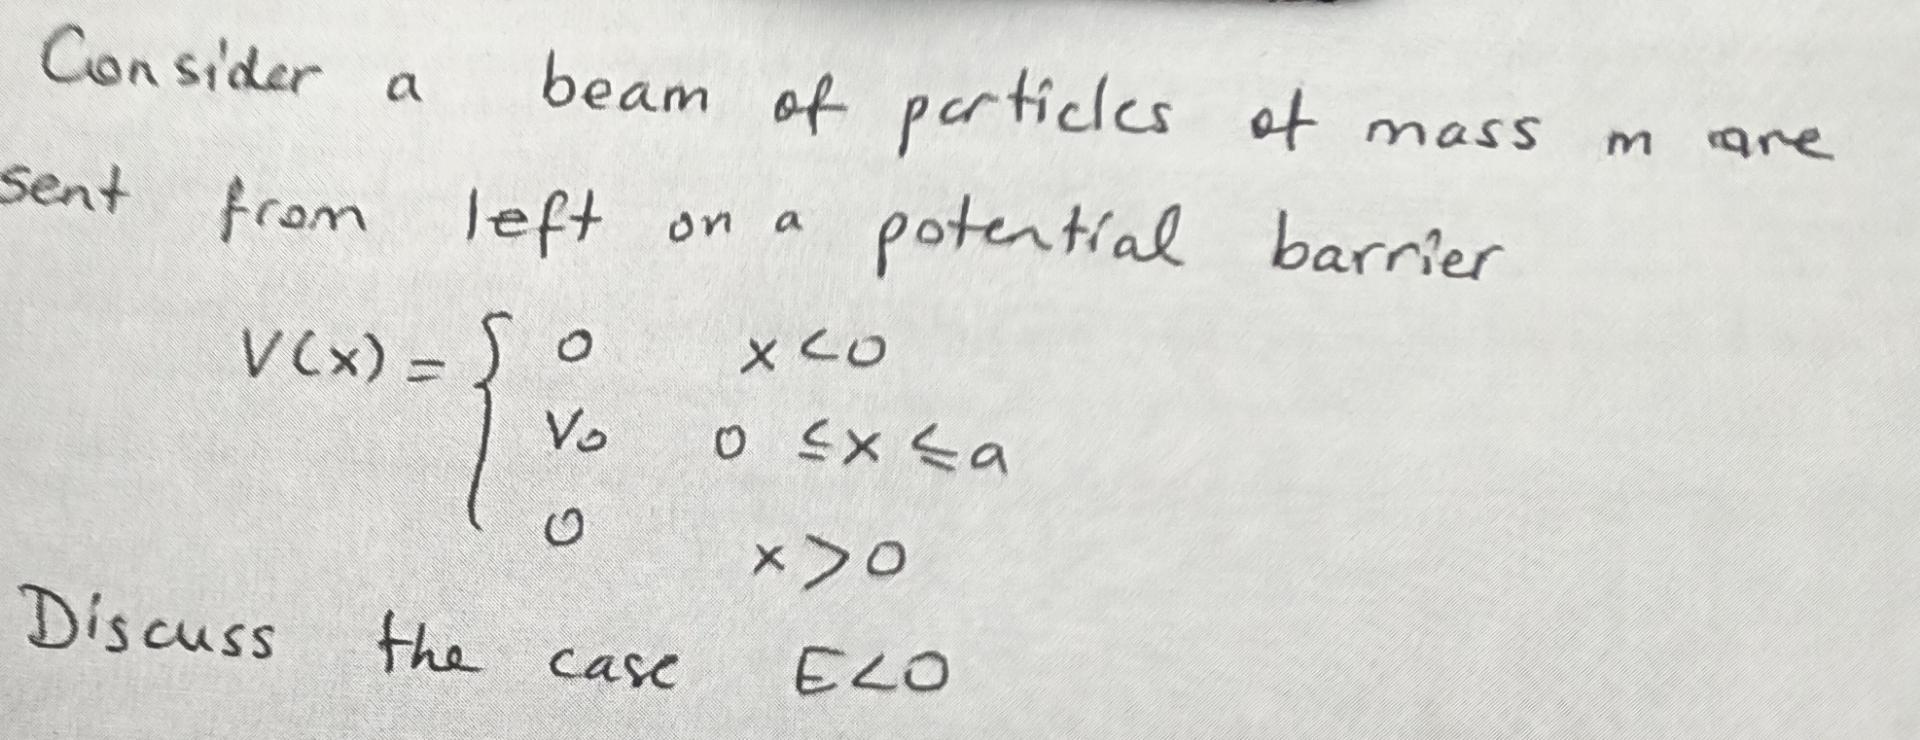 Consider a beam of particles of mass m are
sent from left on a potential barrier
V(x) = { 0 x<0
V₀ 0 ≤ x ≤ a
0 x>0
Discuss the case E<0